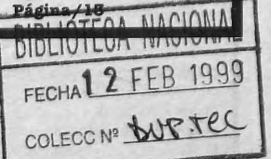 Página/18
BIBLIOTECA NACIONAL
FECHA 12 FEB 1999
COLECC Nº DUP.TEC